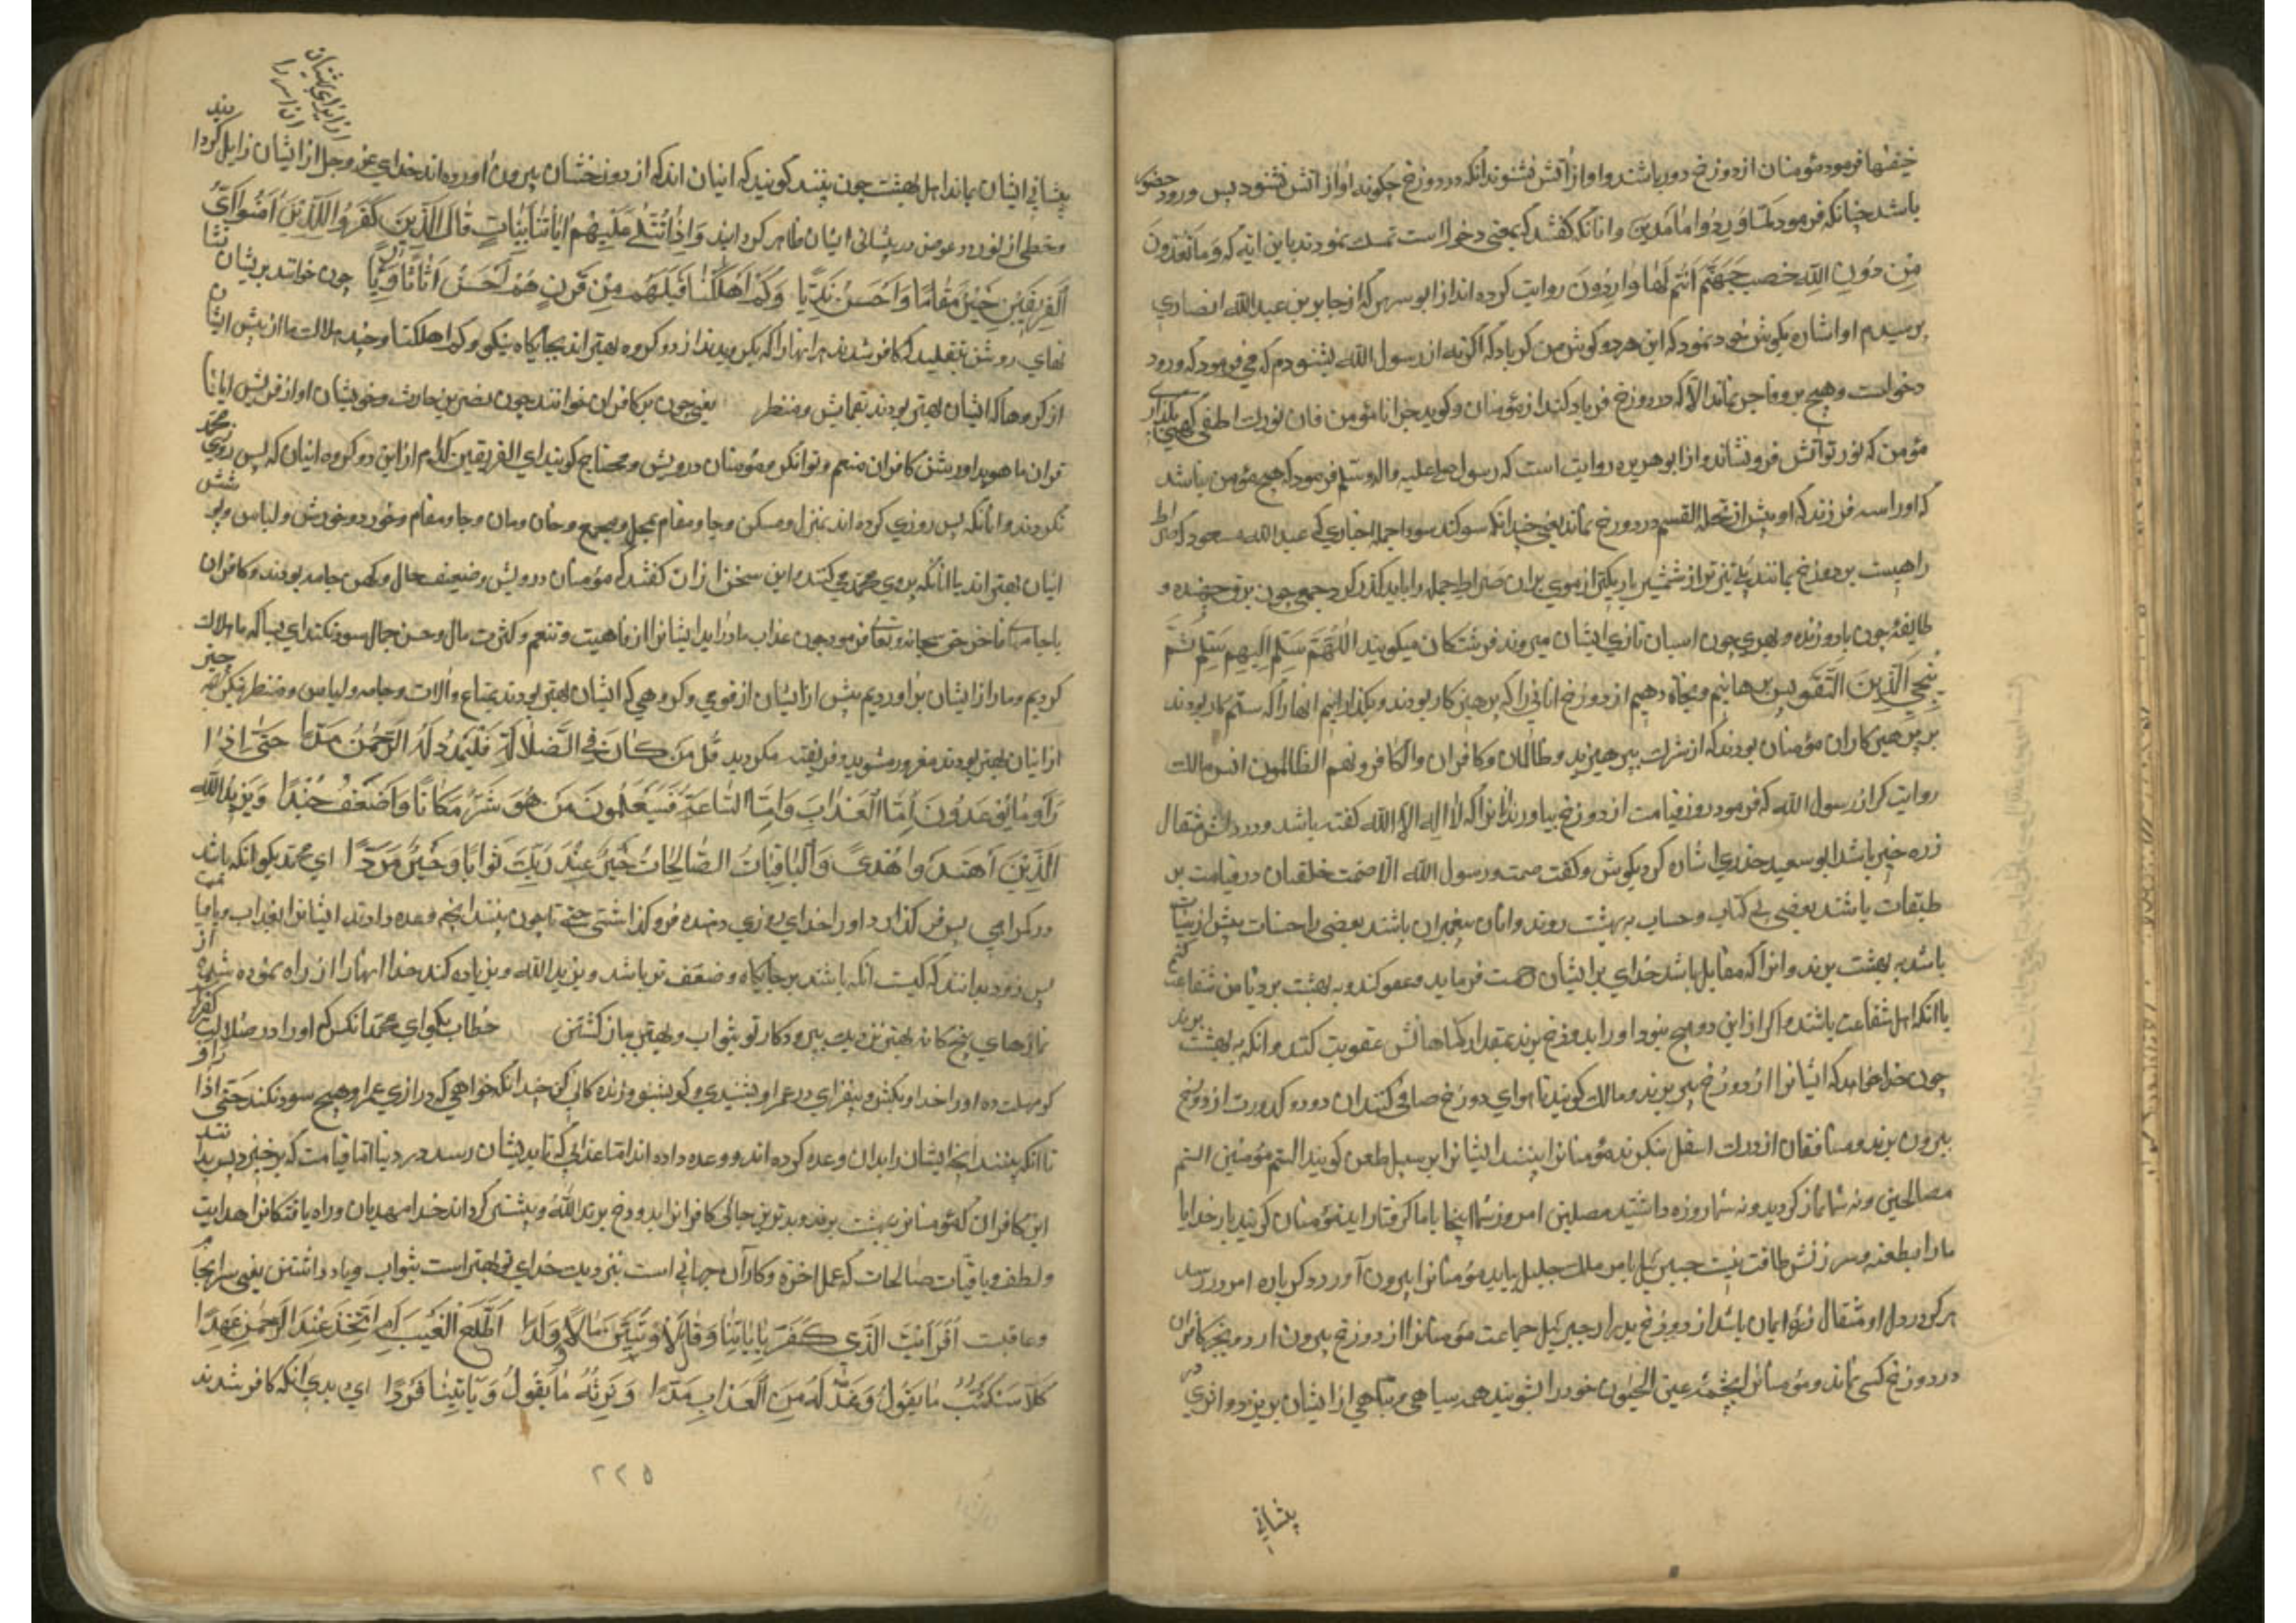 خیفها فرمود مؤمنان از دوزخ دور باشند و اواز آتش نشنوند انکه در دوزخ چکونه اواز آتش نشنود پس ورود حضور
باشد چنانکه فرمود لما ورد وا ما مدین و انانکه کفتند که بمعنی دخول است تمسک نمودند باین ایه که وما تعبدون
مِن دُونِ اللهِ حصب جَهَنَّم اَنتُم لَهَا وارِدُونَ روایت کرده اند از ابو سرین که از جابر بن عبد الله انصاری
پرسیدم او اشاره بکوش خود نمود که این هر دو کوش من کر باد که اکر نه از رسول الله بشنودم که می فرمود که ورود
دخولست و هیچ بر و فاجر نماند الا که در دوزخ فریاد کند از مؤمنان و کوید جزانا مؤمن فان نورک اطفی لهبی بکذار ای
مؤمن که نور تو آتش فرو نشاند و از ابو هریره روایت است که رسول صلی علیه واله وسلم فرمود که هیچ مؤمن نباشد
که او را سه فرزند که او پیش از تحله القسم در دوزخ نماند یعنی چندانکه سوکند سود اجمله اخباری که عبد الله مسعود که صراط
راهیست بر دوزخ مانند پلی تیز تر از شمشیر باریکتر از موی بران صراط جمله را باید کذر کرد جمعی چون برق جهنده و
طایفه چون باد وزنده و بهری چون اسبان تازی ایشان میروند فرشتکان میکویند اَللّهُمَّ سَلِّم اِلَیهِم سَلِّم ثُمَّ
نُنَجِّي الَّذِینَ اتَّقَو پس برهانیم و نجاة دهیم از دوزخ انانی را که پرهیز کار بودند و بکذرانیم انها را که ستم کار بودند
پرهیزکاران مؤمنان بودند که از شرک بپرهیزید و ظالمان و کافران والکافرونهم الظالمون انس مالک
روایت کرد از رسول الله که فرمود روز قیامت از دوزخ بیاورند انرا که لا اله الا الله کفته باشد و در دلش مثقال
ذره خیر باشد ابو سعید خدری اشاره کرد بکوش و کفت صمت ورسول الله الا ضمت خلقان در قیامت بر
طبقات باشند بعضی بی کتاب و حساب به بهشت روند و انان پیغمبران باشند بعضی را حسنات پیش از سیئات
باشد به بهشت برند و انرا که مقابل باشد خدای بر ایشان رحمت فرماید و عفو کند و به بهشت برد تا من شفاعت کنم
یا انکه اهل شفاعت باشند و اکر از این دو هیچ نبود او را بدوزخ برند بمقدار کناهانش عقوبت کنند و انکه به بهشت برند
چون خدا خواهد که ایشانرا از دوزخ بیرون برند و مالک کویند تا هوای دوزخ صافی کنند ان دود و کدورت از دوزخ
بیرون برند و منافقان از درک اسفل بنکرند مؤمنانرا ببینند ایشانرا بر سبیل طعن کویند الستم مؤمنین الستم
مصالحین و نه شما نماز کردید و نه شما روزه داشتید مصلین امروز شما اینجا با ما کرفتارید مؤمنان کویند بار خدایا
ما را بطعنه و سرزنش طاقت نیست جبرئیل بامر ملک جلیل بیاید مؤمنانرا بیرون آورد و کرباره امر در رسد
هر که در دل او مثقال ذره ایمان باشد از دوزخ بدر ار جبرئیل جماعت مؤمنانرا از دوزخ بیرون ارد و بجز کافران
در دوزخ کسی نماند و مؤمنانرا بچشمه عین الحیون خود را بشویند همه سیاهی و تباهی از ایشان بریزد و اثری در
پیشانی
از ایزدای ایشان
ان اسم را
پیشانی ایشان بماند اهل بهشت چون بینند کویند که اینان اند که از دوزخشان بیرون آورده اند خدای عز وجل از ایشان زایل کرداند
و خطی از نور و عوض در پیشانی ایشان ظاهر کرداند وَاِذا تُتلی عَلَیهِم ایاتنا بَیِّنات قالَ الَّذِینَ کَفَرُوا لِلَّذِینَ اَمَنُوا اَیُّ
اَلفَرِیقَینِ خَیرٌ مَقامًا وَاَحسَنُ نَدِیًّا وَکَم اَهلَکنا قَبلَهُم مِن قَرنٍ هُم اَحسَنُ اَثاثًا وَرِیًا چون خوانند بر ایشان نشا
نهای روشن بتقلید که کافر شدند مر انها را که بکرویدند از دو کروه بهتر اند بجایکاه نیکو و کم اهلکنا و چند هلاک ما از پیش ایشان
از کروها که ایشان بهتر بودند بقمایش و منظر یعنی چون بر کافران خوانند چون نضر بن حارث و خویشان او از قریش ایاتا
قران ما هویدا و روشن کافران منعم و توانکر و مؤمنان درویش و محتاج کویند ای الفریقین کدام از این دو کروه اینان که پس روی محمد
نکردند و انانکه پس روزی کرده اند بمنزل و مسکن و جا و مقام بمحل و مجمع و خان و مان و جا و مقام و خورد و خورش و لباس و پوشش
اینان بهتر اند یا انانکه پیروی محمد می کنند این سخن از ان کفتند که مؤمنان درویش و ضعیف حال و کهن جامه بودند و کافران
با جامه فاخر حق سبحانه و تعالی فرمود چون عذاب ما در اید ایشانرا از رفاهیت و تنعم و کثرت مال و حسن جمال سود نکند ای بسا که ما هلاک
کردیم و مار از ایشان بر آوردیم پیش از ایشان از قومی و کروهی که ایشان بهتر بودند بمتاع و الات و جامه و لباس و منظر نیکو
از اینان بهتر بودند مغرور مشوید و فریفته مکردید قُل مَن کانَ فِی الضَّلالَةِ فَلیَمدُد لَهُ الرَّحمنُ مَدًّا حَتّی اِذا
رَاَو ما یُوعَدُونَ اِمَّا العَذابَ وَاِمَّا السّاعَة فَسَیَعلَمُونَ مَن هُوَ شَرٌّ مَکانًا وَاَضعَفُ جُندًا وَیَزِیدُ اللهُ
الَّذِینَ اهتَدَوا هُدًی وَالباقِیاتُ الصّالِحاتُ خَیرٌ عِندَ رَبِّکَ ثَوابًا وَخَیرٌ مَرَدًّا ای محمد بکو انکه باشد
در کمراهی پس فرو کذارد او را خدای روزی دهنده فرو کذاشتی حتی تا چون بینند انچه وعده دادند ایشانرا بعذاب و یا قیامت
پس زود بدانند که کیست انکه باشند بر جایکاه و ضعیف تر باشد و یزید الله و زیاده کند خدا انها را از راه نموده شده
نمازهای پنجکانه بهتر نزدیک پروردکار تو بثواب و بهتر بباز کشتن خطاب بکو ای محمد انکس که او را در ضلالت
کو مهلت ده او را خداوندکش و بیفزای در عمر او بشنیدی و کو بشنو و زنده کانی کن چندانکه خواهی که درازی عمر او هیچ سود نکند حَتّی اِذا
تا انکه ببینند انچه ایشان را بدان وعده کرده اند و وعده داده اند اما عذابی که تا بدیشان رسد در دنیا اما قیامت که برخیزد پس بدانند
این کافران که مؤمنانرا بهشت برند و بدترین جائی کافرانرا بدوزخ برند
ولطف و باقیات صالحات که عمل اخرة و کار آن جهانی است نزدیک خدای تو بهتر است بثواب و یاد داشتن یعنی سرانجام
و عاقبت اَفَرَاَیتَ الَّذِی کَفَرَ بِایاتِنا وَقالَ لَاُوتَیَنَّ مالًا وَوَلَدًا اَطَّلَعَ الغَیبَ اَمِ اتَّخَذَ عِندَ الرَّحمنِ عَهدًا
کَلّا سَنَکتُبُ ما یَقُولُ وَنَمُدُّ لَهُ مِنَ العَذابِ مَدًّا وَنَرِثُهُ ما یَقُولُ وَیَاتِینا فَردًا ای بدی انکه کافر شدند
٢٢٥